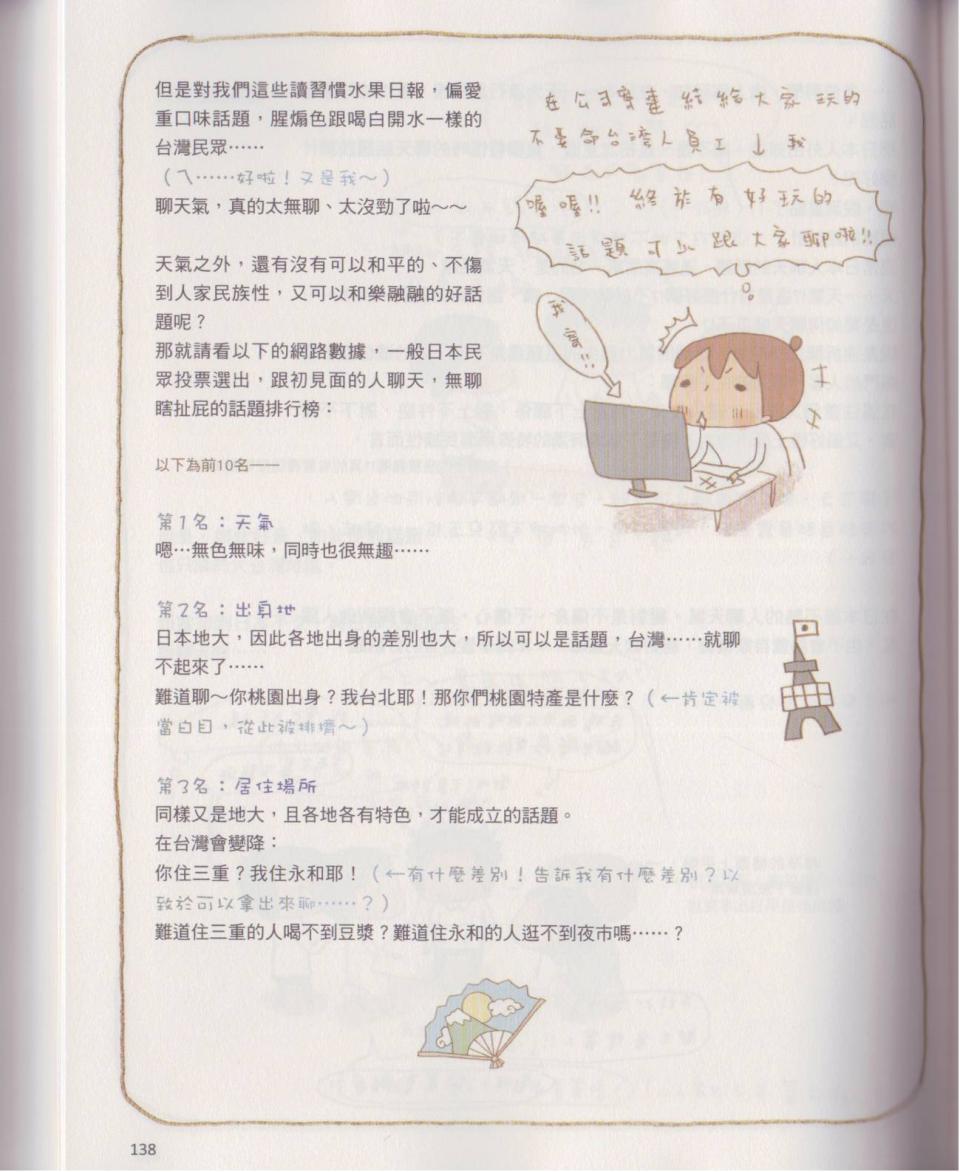 但是對我們這些讀習慣水果日報，偏愛
重口味話題，腥煽色跟喝白開水一樣的
台灣民眾……
（ㄟ……好啦！又是我～）
聊天氣，真的太無聊、太沒勁了啦～～
天氣之外，還有沒有可以和平的、不傷
到人家民族性，又可以和樂融融的好話
題呢？
那就請看以下的網路數據，一般日本民
眾投票選出，跟初見面的人聊天，無聊
瞎扯屁的話題排行榜：
以下為前10名——
在公司穿蓬
給大家玩的
不要命台灣人員工 ↓ 我
喔喔!! 終於有好玩的
話題可以跟大家聊啦!!
我家!!
第1名：天氣
嗯…無色無味，同時也很無趣……
第2名：出身地
日本地大，因此各地出身的差別也大，所以可以是話題，台灣……就聊
不起來了……
難道聊～你桃園出身？我台北耶！那你們桃園特產是什麼？（←肯定被
當白目，從此被排擠～）
第3名：居住場所
同樣又是地大，且各地各有特色，才能成立的話題。
在台灣會變降：
你住三重？我住永和耶！（←有什麼差別！告訴我有什麼差別？以
致於可以拿出來聊……？）
難道住三重的人喝不到豆漿？難道住永和的人逛不到夜市嗎……？
138